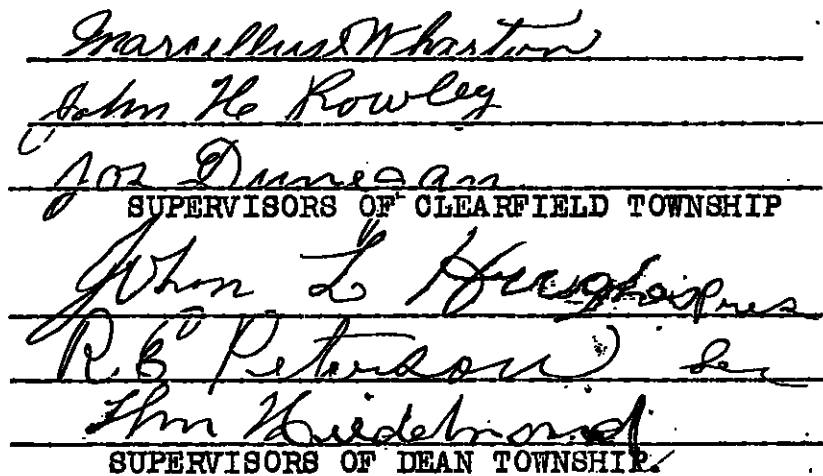 Marcellus Wharton
John H Rowley
Jos Dunegan
SUPERVISORS OF CLEARFIELD TOWNSHIP
John L Hughes Pres
R.E Peterson Sec
SUPERVISORS OF DEAN TOWNSHIP.